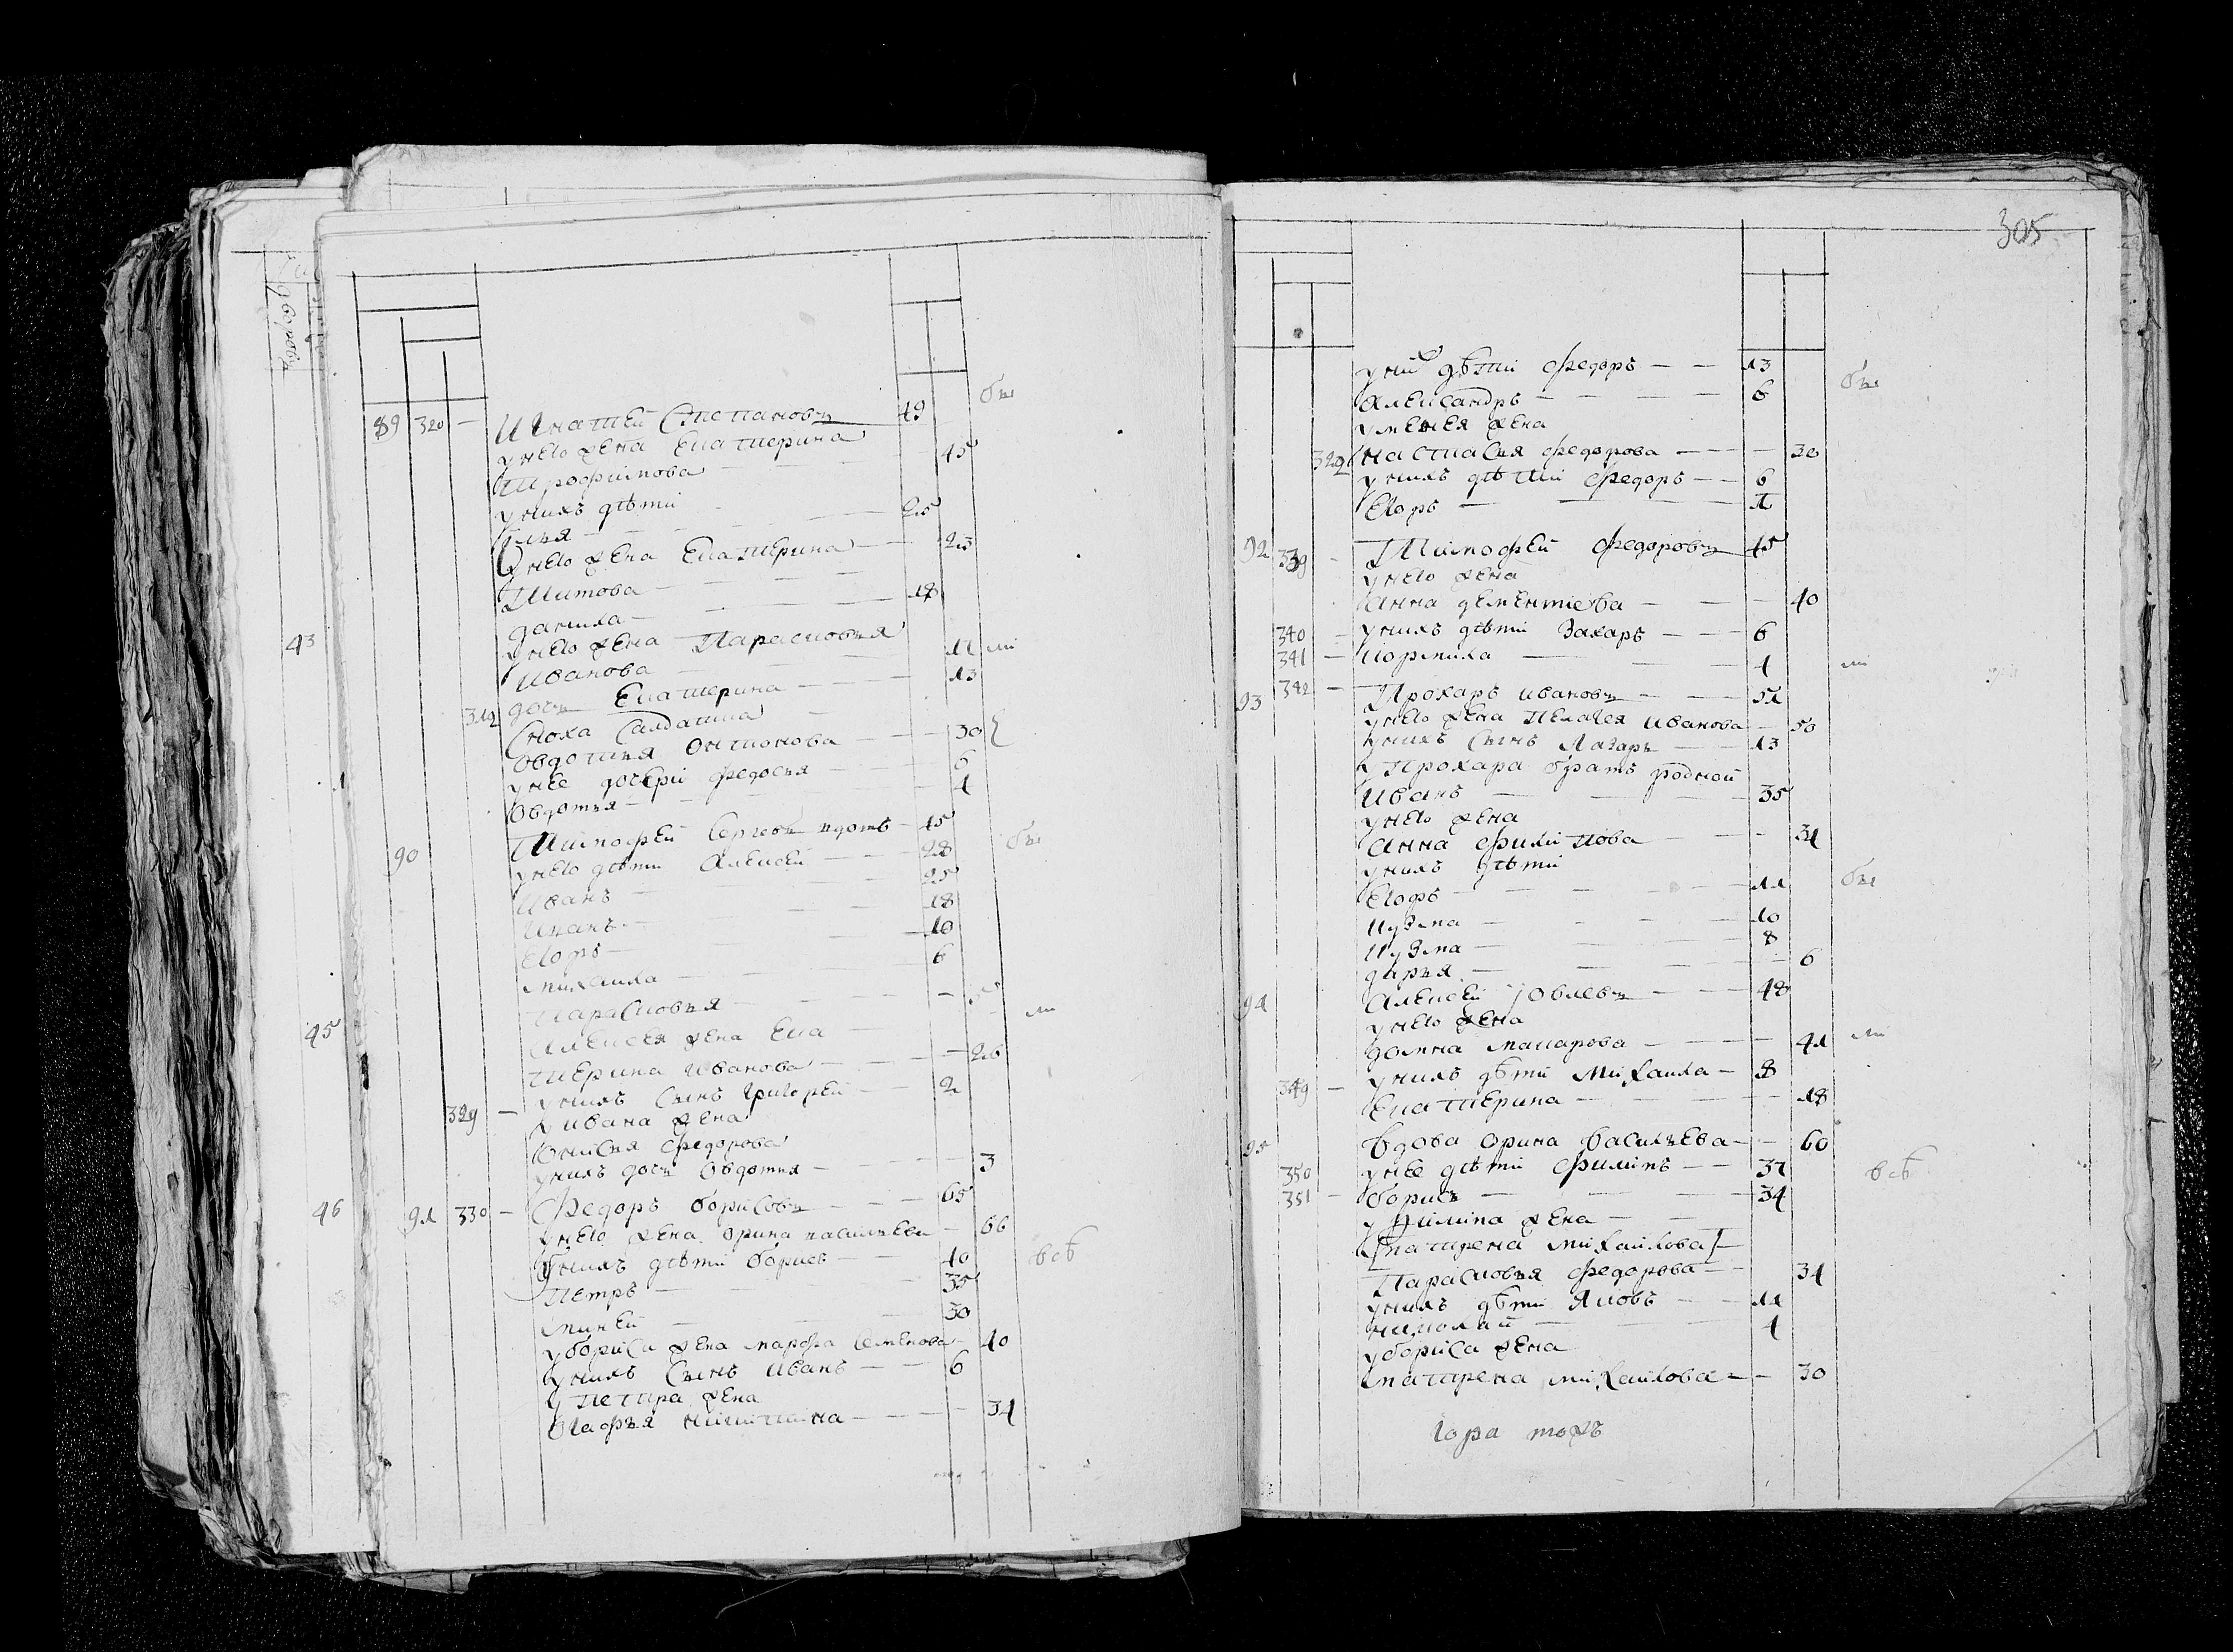 305
89 320 — Игнатей Степановъ 49
унего жена Екатерина
Трофимова 45
унихъ дѣти
Илья — 25
Унего жена Екатерина — 23
Титова —
данила — 18
унего жена Парасковья
Иванова — 21
дочь Екатерина — 13
Сноха Салдатка
Овдотья Онтонова — 30
унее дочери федосья — 6
Овдотья — 4
90 Тимофей Сергеевъ вдовъ — 45
унего дѣти Алексей — 28
Иванъ — 25
Иванъ — 18
Егоръ — 10
михаила — 6
Парасковья —
Алексея жена Ека
терина Иванова — 26
унихъ Сынъ Григорей — 2
329 — Уивана жена
Онисья федорова
унихъ дочь Овдотья — 3
91 330 — Федоръ борисовъ — 65
унего жена орина васильева — 66
Унихъ дѣти борисъ — 40 всѣ
Петръ — 35
михей — 30
убориса жена марфа семенова 40
унихъ Сынъ Иванъ — 6
у Петра жена
Огафья никитина — 34
43
45
46
унихъ дѣти федоръ — 13
Александръ — 6
жена
настасья федорова — 30
унихъ дѣти федоръ — 6
Егоръ —
92 339 — Тимофей федоровъ 45
унего жена
анна дементиева — 40
340 — унихъ дѣти Захаръ — 6
341 — кормила — 4
93 342 — Прохаръ ивановъ — 51
унего жена Пелагея Иванова — 50
унихъ Сынъ Лазарь — 13
у Прохара братъ родной
Иванъ — 35
унего жена
анна филипова — 34
унихъ дѣти
Егоръ — 11
кузма — 10
кузма — 8
дарья — 6
94 Алексей Иовлевъ — 48
унего жена
домна макарова — 41
349 — унихъ дѣти михаила — 8
Екатерина — 18
95 вдова орина васильева — 60
350 унее дѣти филипъ — 37 всѣ
351 — борисъ — 34
уфилипа жена —
матрена михаилова
Парасковья федорова — 34
унихъ дѣти Яковъ — 11
николай — 4
убориса жена
матрена михаилова — 30